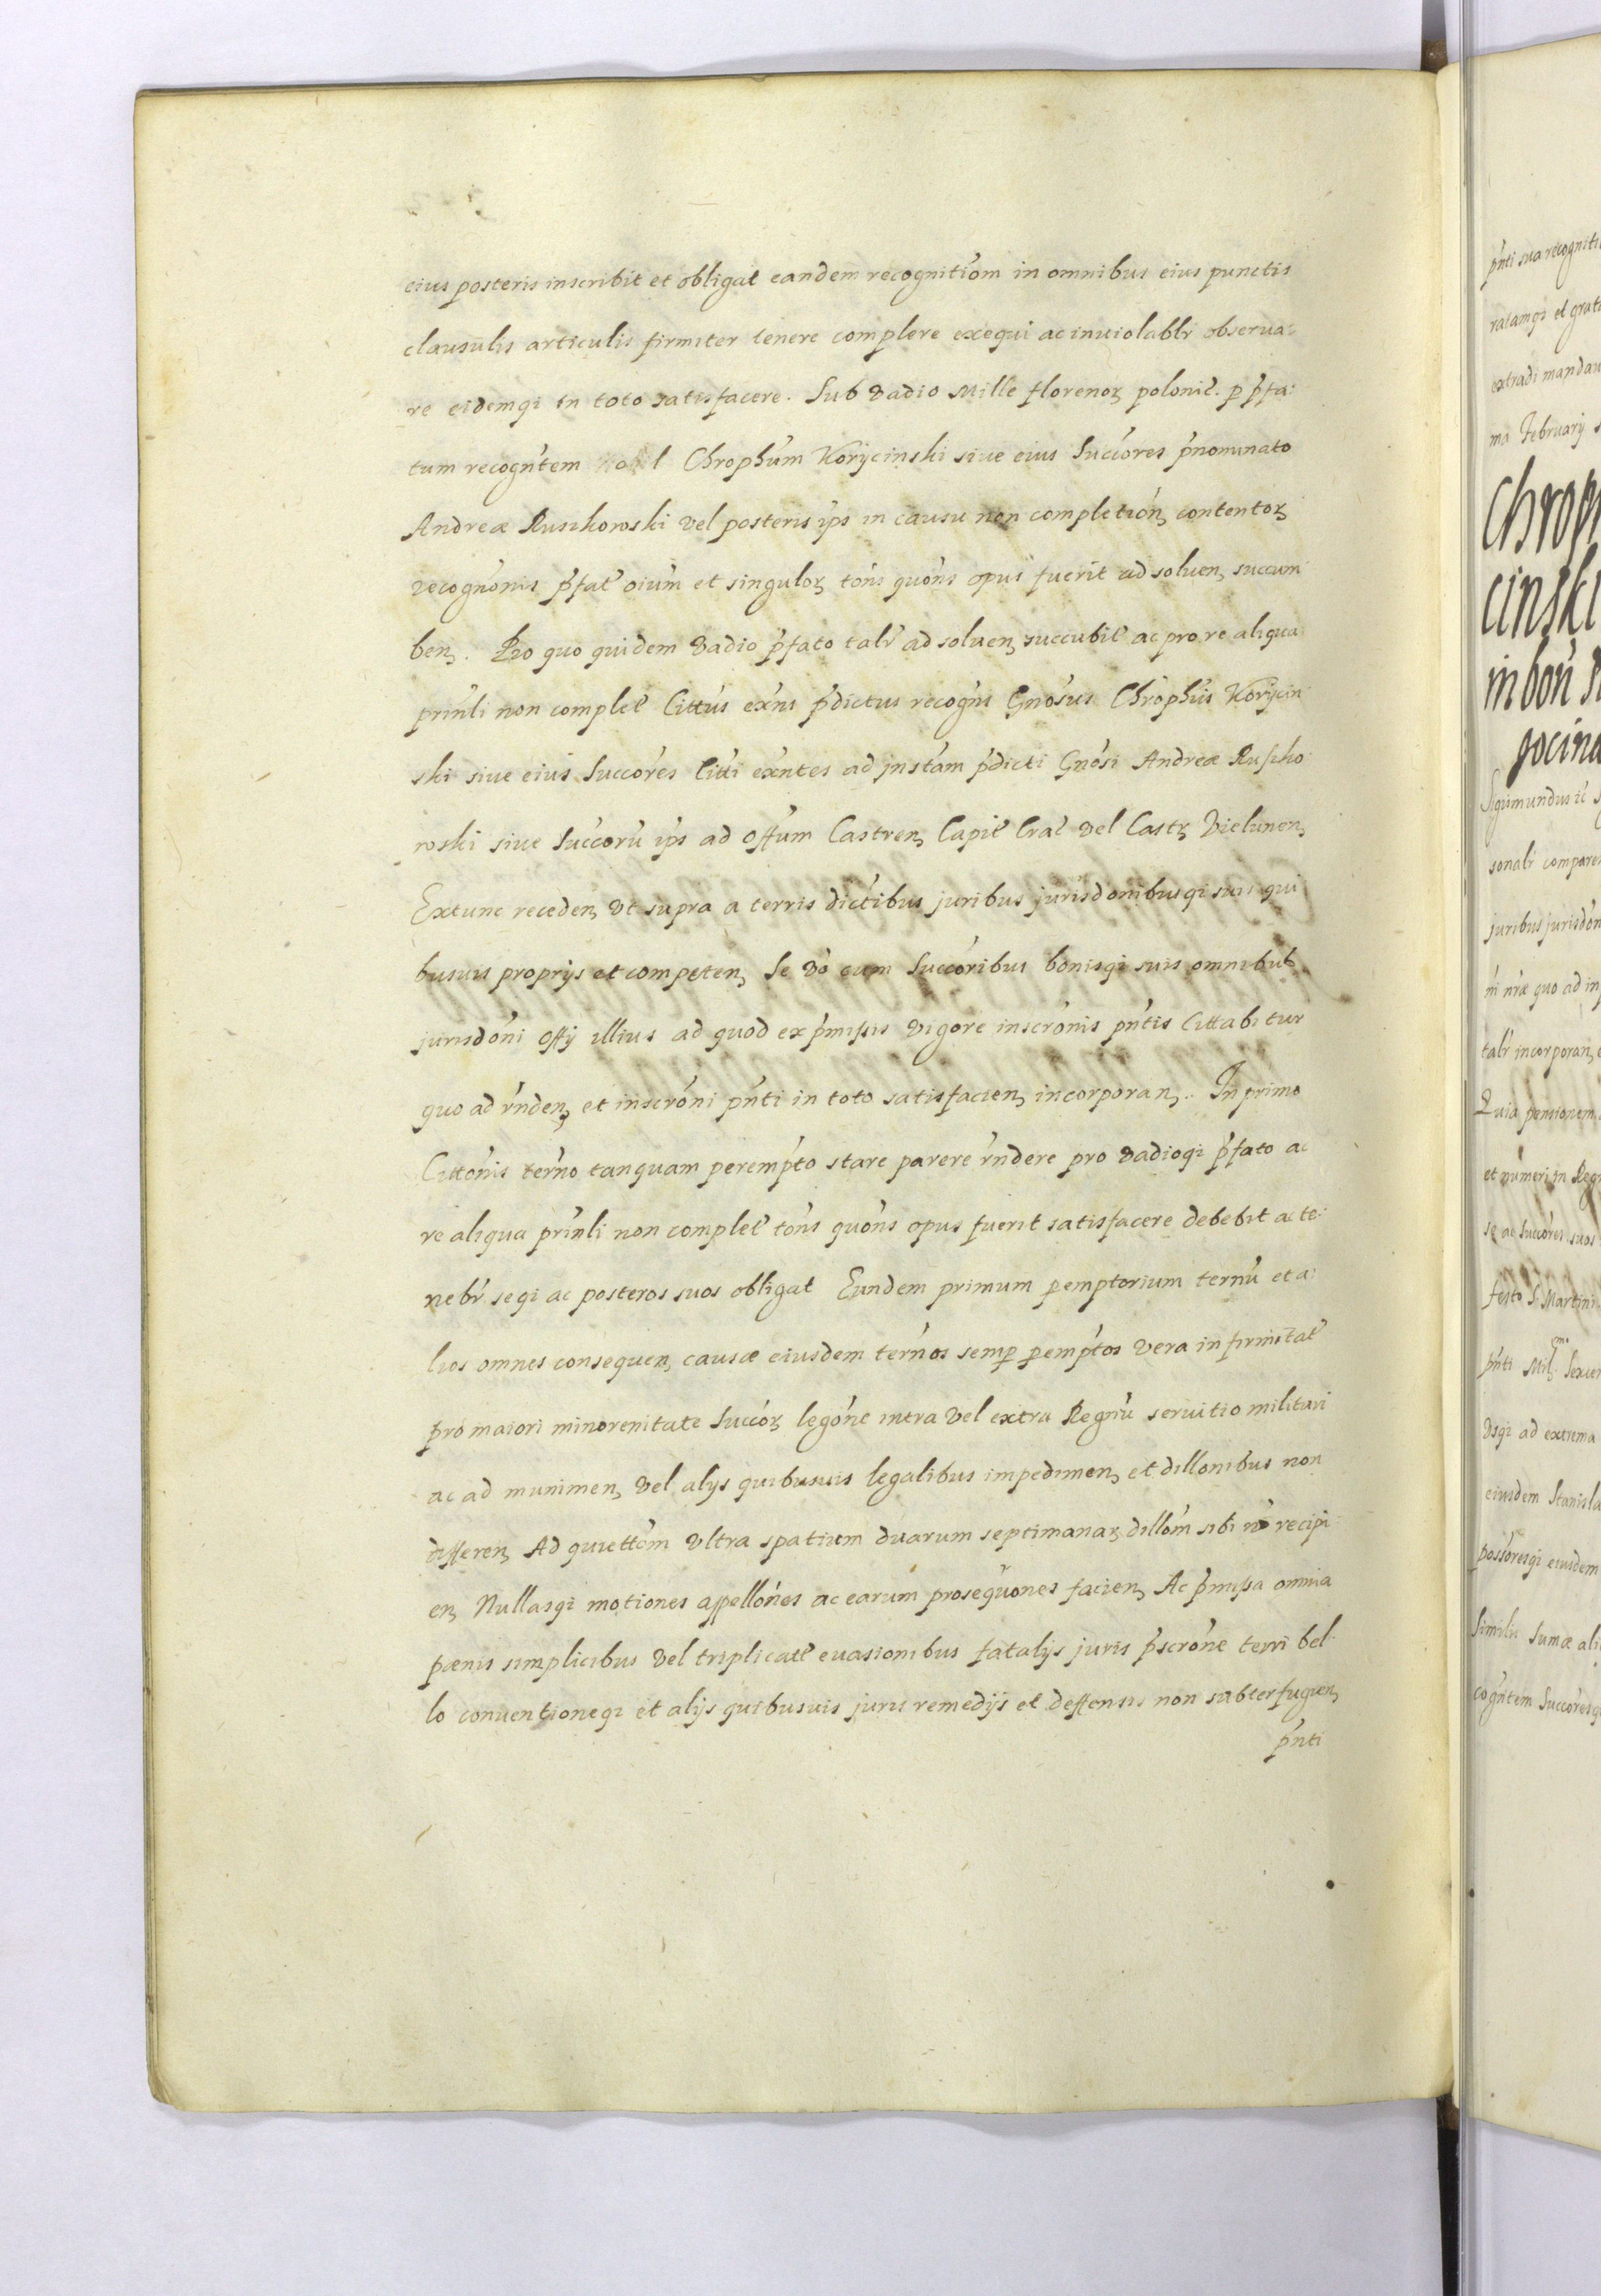 eius posteris inscribit et obligat eandem recognitiom in omnibus eius punctis
clausulis articulis firmiter tenere complere exequi ac inuiolablr observa:
re eidemqi in toto satisfacere. Sub vadio Mille florenoꝝ polonic. p pfa:
tum recognte&#109; Chrophum Korycinski siue eius Succores pnominato
Andreæ Rusikowski vel posteris ips in causu non completion, contentoꝝ
recognonis pfat oium et singuloꝝ tons quons opus fuerit ad soluen, succum
ben,. Pro quo quidem vadio pfato talr ad soluen, succubit ac pro re aliqua
prinli non complet Cittus exns pdictus recogns Gnosus Chrophus Korycin
ski siue eius Succores Citti exntes ad instam pdicti Gnosi Andreæ Rusiko
wski siue Succoru ips ad Offum Castren, Capit Crac vel Castꝝ Vielunen,
Extunc receden, vt supra a terris dictibus juribus jurisdonibusqi suis qui
busuis proprijs et competen, Se vo cum Succoribus bonisqi suis omnibus
jurisdoni Offij illius ad quod ex pmissis vigore inscronis pntis Cittabitur
quo ad rnden, et inscroni pnti in toto satisfacien, incorporan,. In primo
Cittonis terno tanquam perempto stare parere rndere pro vadioqi pfato ac
re aliqua prinli non complet tons quons opus fuerit satisfacere debebit ac te:
nebr seqi ac posteros suos obligat Eundem primum pemptorium ternu et a:
lios omnes consequen, causæ eiusdem ternos semp pemptos vera infirmitat
pro maiori minorenitate Succoꝝ legone intra vel extra Regnu seruitio militari
ac ad munimen, vel alijs quibusuis legalibus impedimen, et dillonibus non
differen, Ad quiettom vltra spatium duarum septimanaꝝ dillom sibi no recipi
en, Nullasqi motiones appellones ac earum prosequones facien, Ac pmissa omnia
pœnis simplicibus vel triplicat euasionibus fatalijs juris pscrone terri bel:
lo conuentioneqi et alijs quibusuis juris remedijs et deffensis non subterfugien,
pnti
pnti sua recogniti
ratamqi et grat
extradi mandau
ma February
Chroph
cinski
in bon
gocina
Sigismundus
sonalr compare
juribus jurisdon
quo ad in
talr incorporan,
Quia pensionem
et numeri in Regn
se ac Succores suos
festo S. Martini
pnti Mil
vsqi ad extrema
eiusdem Stanisla
possoresqi eiusdem
Similis sumæ ali
cogntem Succoresq